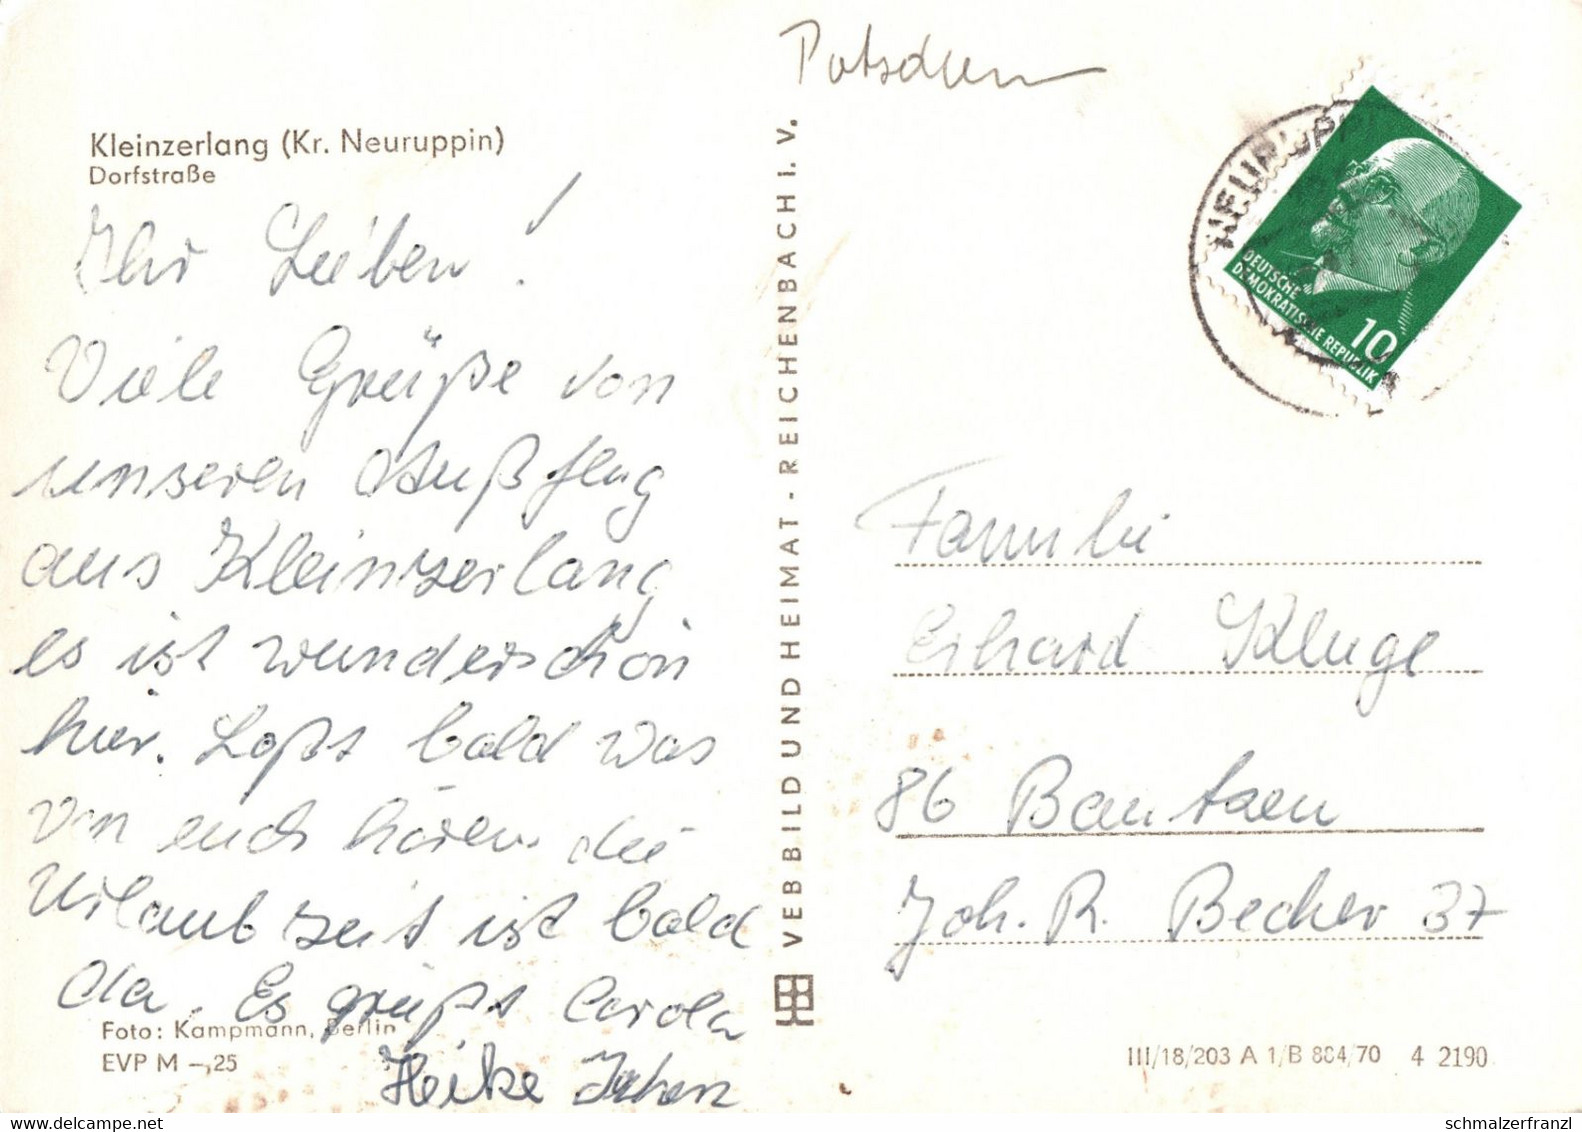 Potsdam
Kleinzerlang (Kr. Neuruppin)
Dorfstraße
Ihr Lieben!
Viele Grüße von
unseren Außflug
aus Kleinzerlang
es ist wunderschön
hier. Laßt bald was
von euch hören. die
Urlaubszeit ist bald
da. Es grüßt Carola
Heike
Foto: Kampmann, Berlin
EVP M –,25
VEB BILD UND HEIMAT · REICHENBACH I. V.
NEURUPPIN
DEUTSCHE
DEMOKRATISCHE REPUBLIK
10
Familie
Erhard Kluge
86 Bautzen
Joh. R. Becher 37
III/18/203 A 1/B 884/70 4 2190
www.delcampe.net
schmalzerfranzl